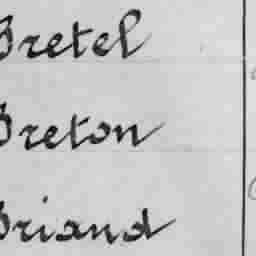 Bretel
Breton
Briand